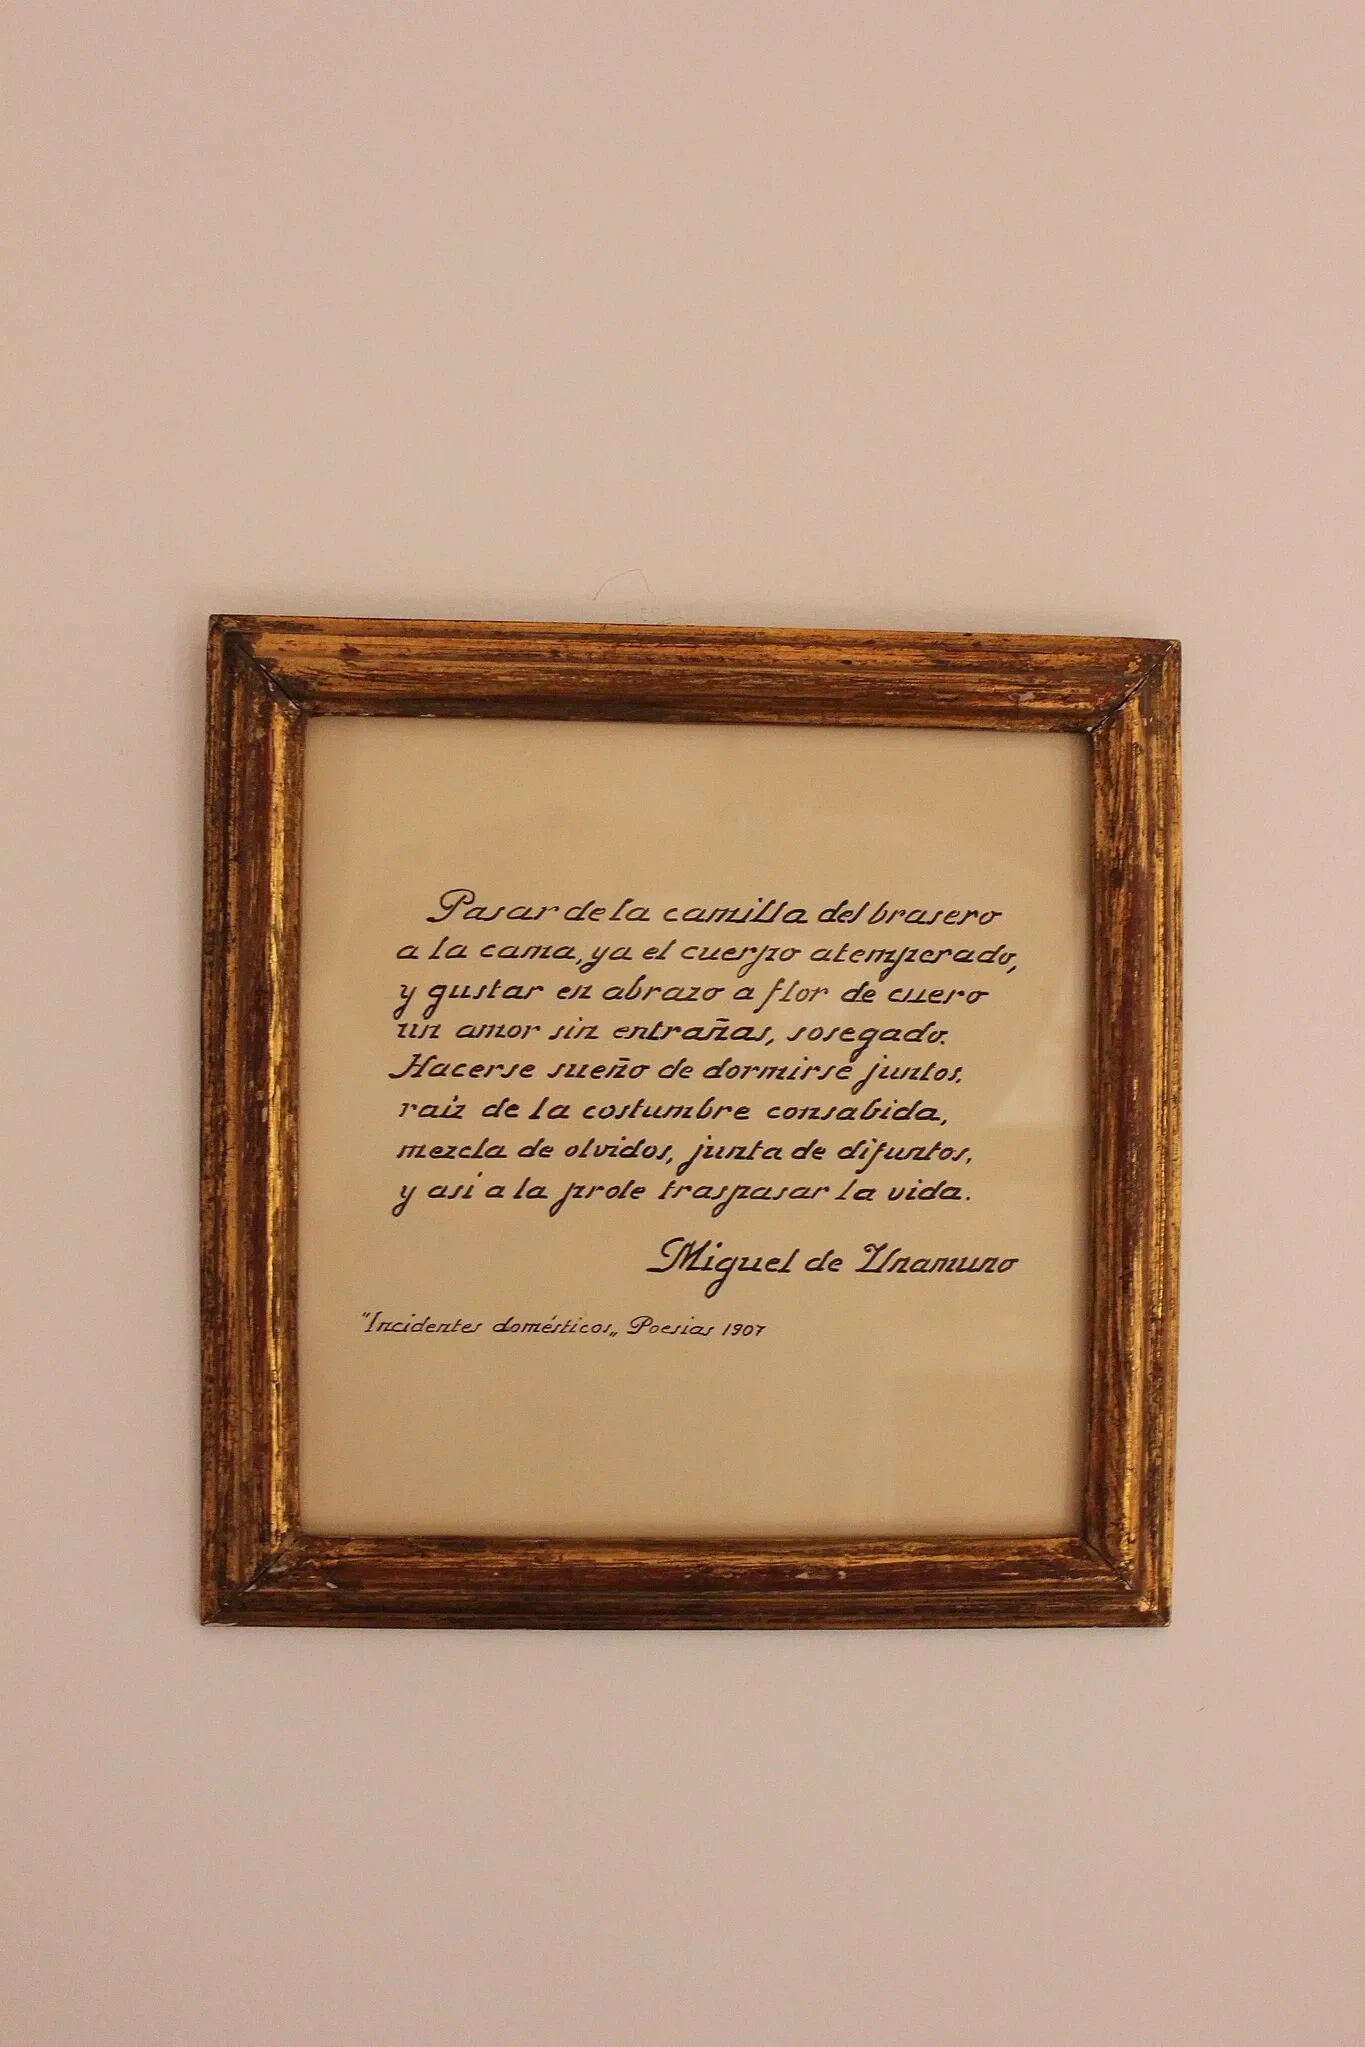 Pasar de la camilla del brasero
a la cama, ya el cuerpo atemperado,
y gustar en abrazo a flor de cuero
un amor sin entrañas, sosegado.
Hacerse sueño de dormirse juntos,
raiz de la costumbre consabida,
mezcla de olvidos, junta de difuntos,
y asi a la prole traspasar la vida.
Miguel de Unamuno
"Incidentes domésticos„ Poesias 1907